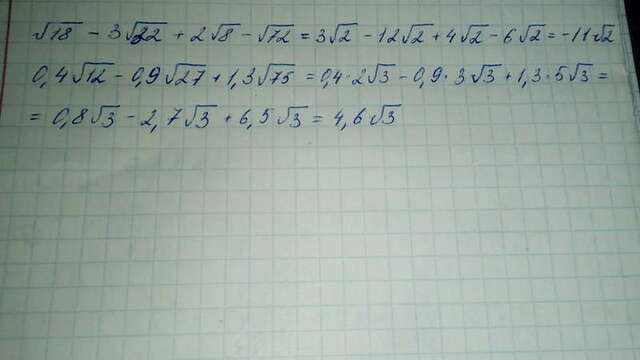 √18 - 3√32 + 2√8 - √72 = 3√2 - 12√2 + 4√2 - 6√2 = -11√2
0,4√12 - 0,9√27 + 1,3√75 = 0,4·2√3 - 0,9·3√3 + 1,3·5√3 =
= 0,8√3 - 2,7√3 + 6,5√3 = 4,6√3